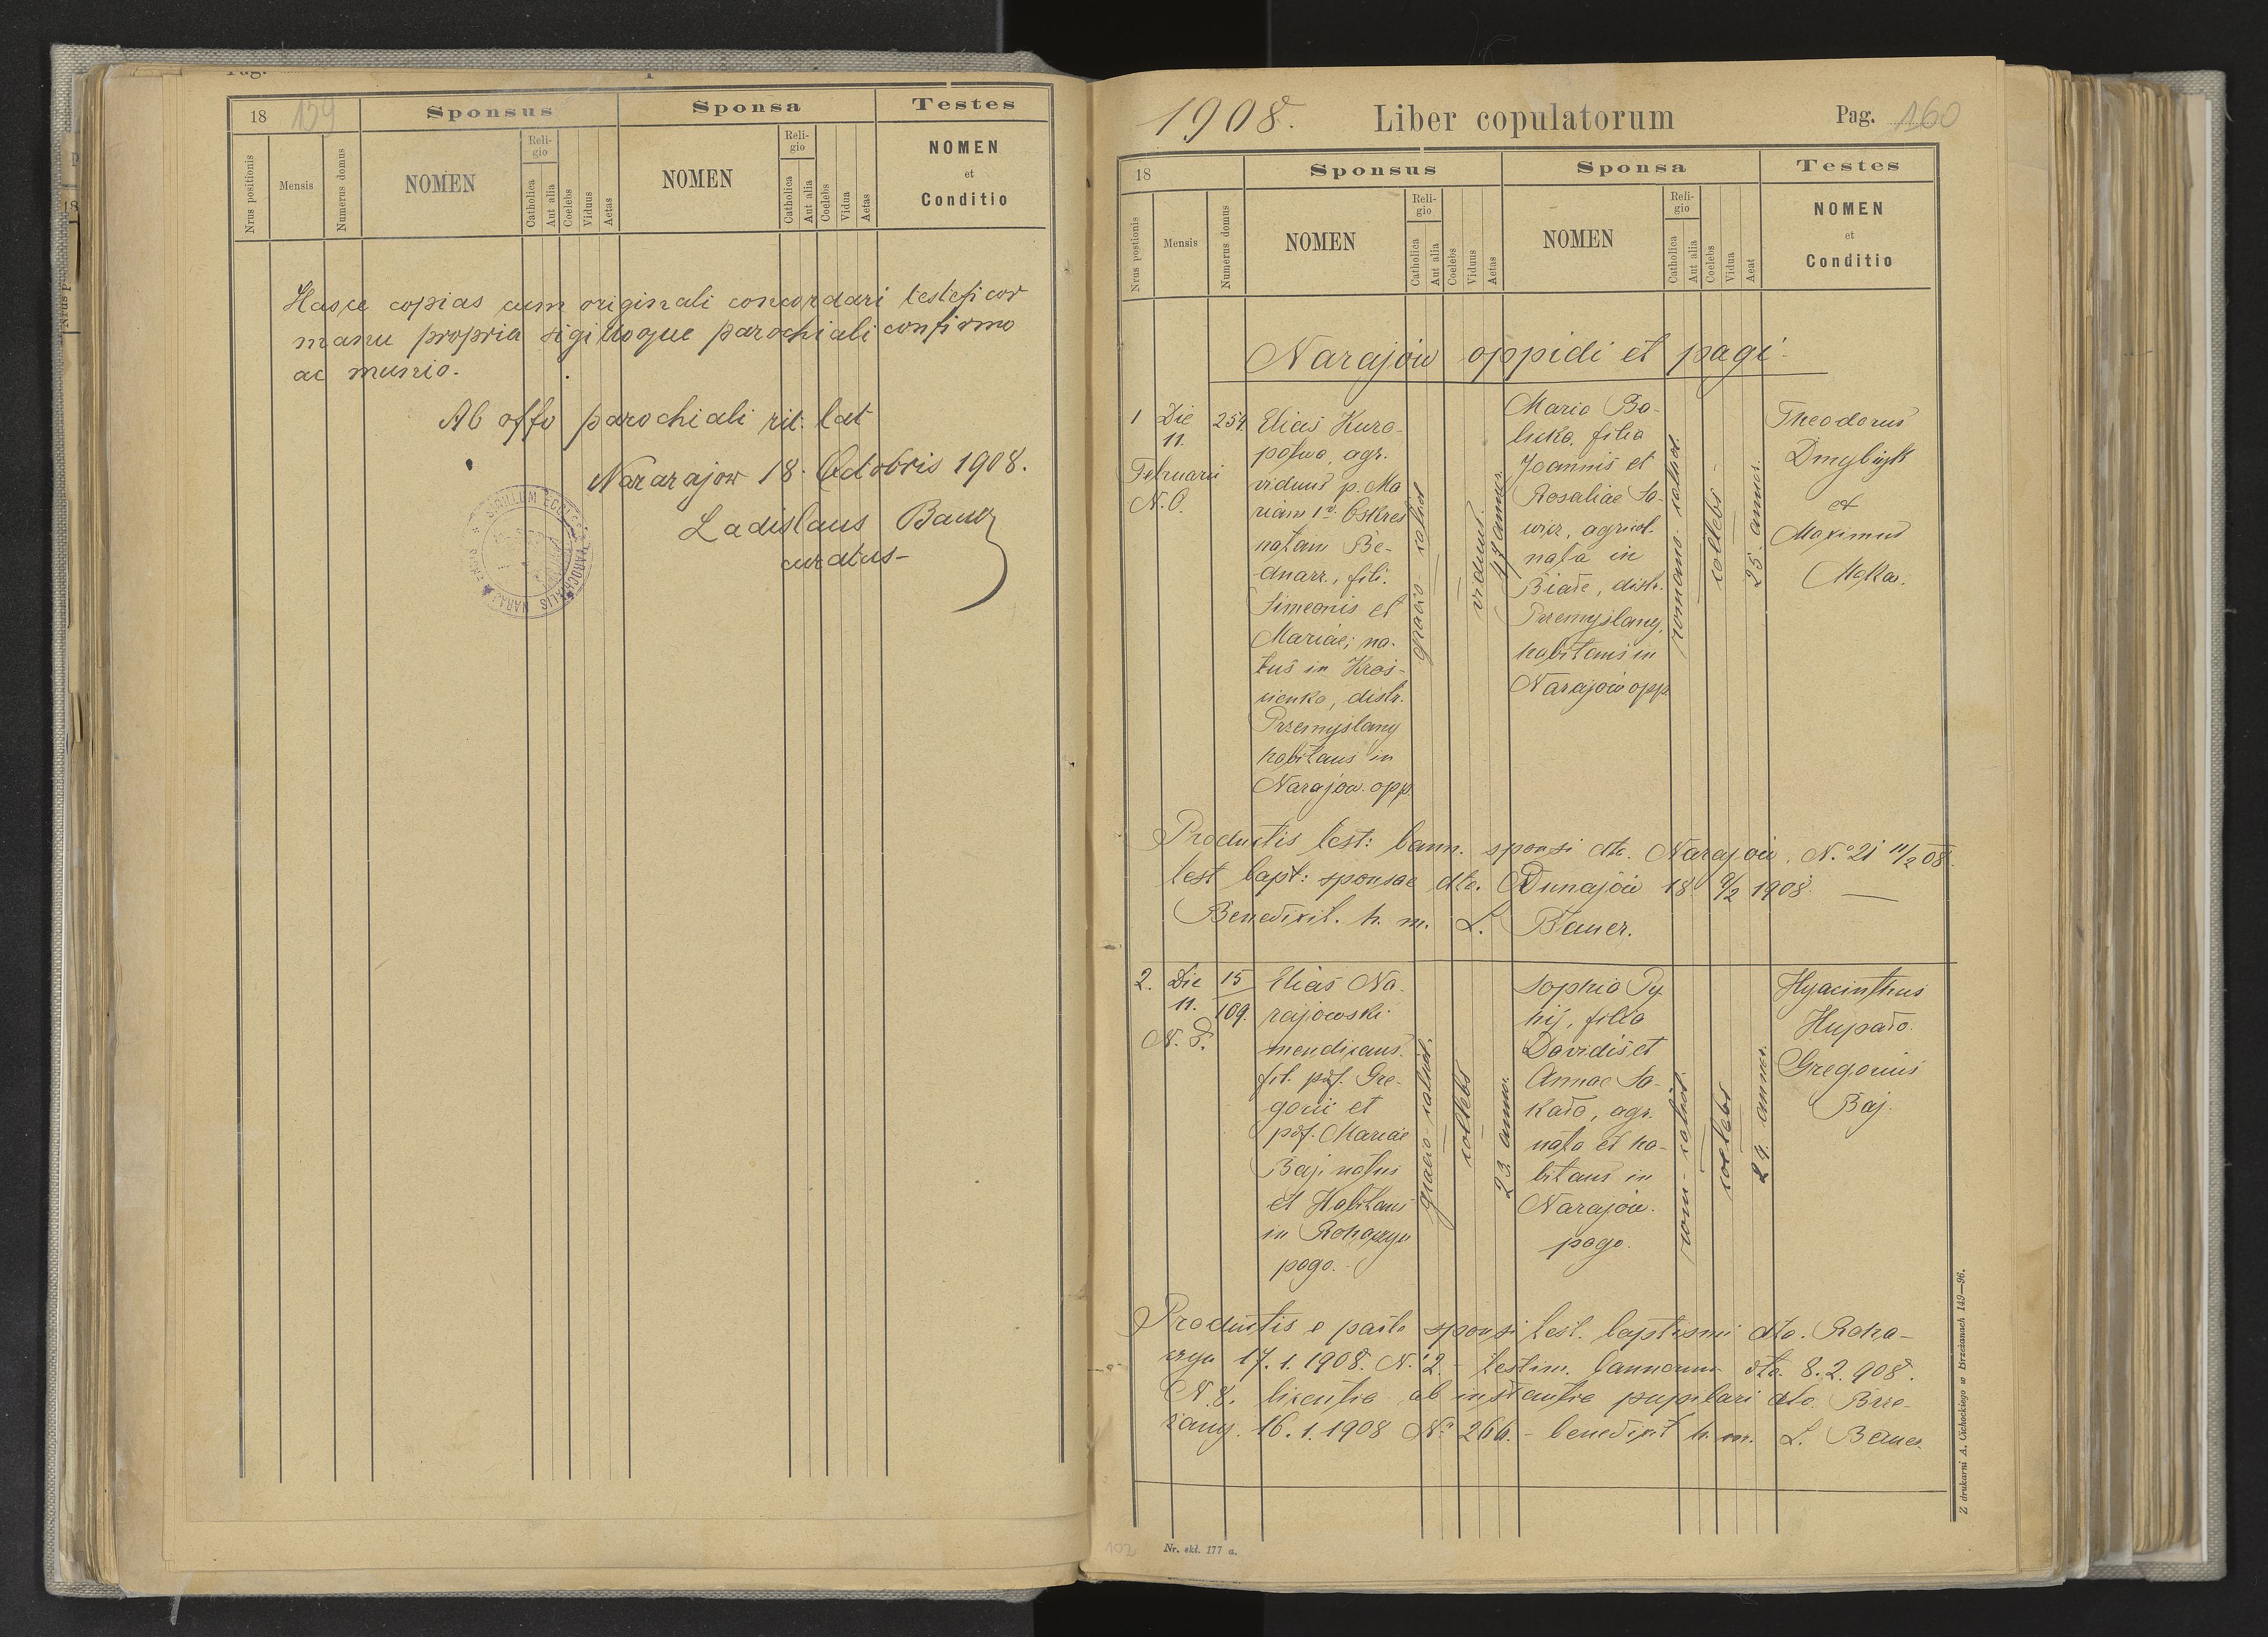 18 159
Sponsus
Sponsa
Testes
Nrus positionis
Mensis
Numerus domus
NOMEN
Reli-
gio
Catholica
Aut alia
Coelebs
Viduus
Aetas
NOMEN
Reli-
gio
Catholica
Aut alia
Coelebs
Vidua
Aetas
NOMEN
et
Conditio
Hasce copias cum originali concordari testificor
manu propria sigilloque parochiali confirmo
ac munio.
Ab offo parochiali rit: lat
Nararajow 18. Octobris 1908.
Ladislaus Bauer
curatus-
1908. Liber copulatorum Pag. 160
18
Sponsus
Sponsa
Testes
Nrus postionis
Mensis
Numerus domus
NOMEN
Reli-
gio
Catholica
Aut alia
Coelebs
Viduus
Aetas
NOMEN
Reli-
gio
Catholica
Aut alia
Coelebs
Vidua
Aeat
NOMEN
et
Conditio
Narajów oppidi et pagi.
1
Die
11.
Februarii
254.
Elias Kuro-
patwa, agr.
viduus p. Ma
riam 1º Oskres
natam Be-
dnarz, fili.
Simeonis et
Mariae; na-
tus in Kroś-
cienko, distr.
Przemyslany
habitans in
Narajów opp.
graeco cathol
viduus.
47 annor.
Maria Ba-
licka, filia
Joannis et
Rosaliae Sa-
wicz, agricol.
nata in
Białe, distr.
Przemyslany,
habitans in
Narajów opp
romano-cathol.
coelebs
25. annor.
Theodorus
Dmybryk
et
Maximus
Mokar.
Productis test: bann. sponsi dto. Narajów, N.º 21 11/2 08.
test bapt: sponsae dto. Dunajów 18 9/2 1908. —
Benedixit. h. m. L. Bauer.
2.
Die
11.
15
109.
Elias Na-
rajowski
mendicans.
fil. pdf. Gre-
gorii et
pdf. Mariae
Baj, natus
et Habitans
in Rohaczyn
pago.
graeco-cathol.
coelebs
23 annor.
Sophia Py
hij, filia
Davidis et
Annae Sa-
kało, agr.
nata et ha-
bitans in
Narajów.
pago.
rom-cathol.
coelebs
24. annor.
Hyacinthus
Hupało.
Gregorius
Baj.
Productis e parte sponsi test. baptismi dto. Roha-
czyn 17.1.1908. N. 2 - testim. bannorum dto. 8.2.908.
N 8. licentia ab instantia pupilari dto. Brze-
żany. 16.1.1908 Nº 266. - benedixit h. m. L. Bauer.
Z drukarni A. Cichockiego w Brzeżanach 149—96.
102
Nr. skł. 177 a.